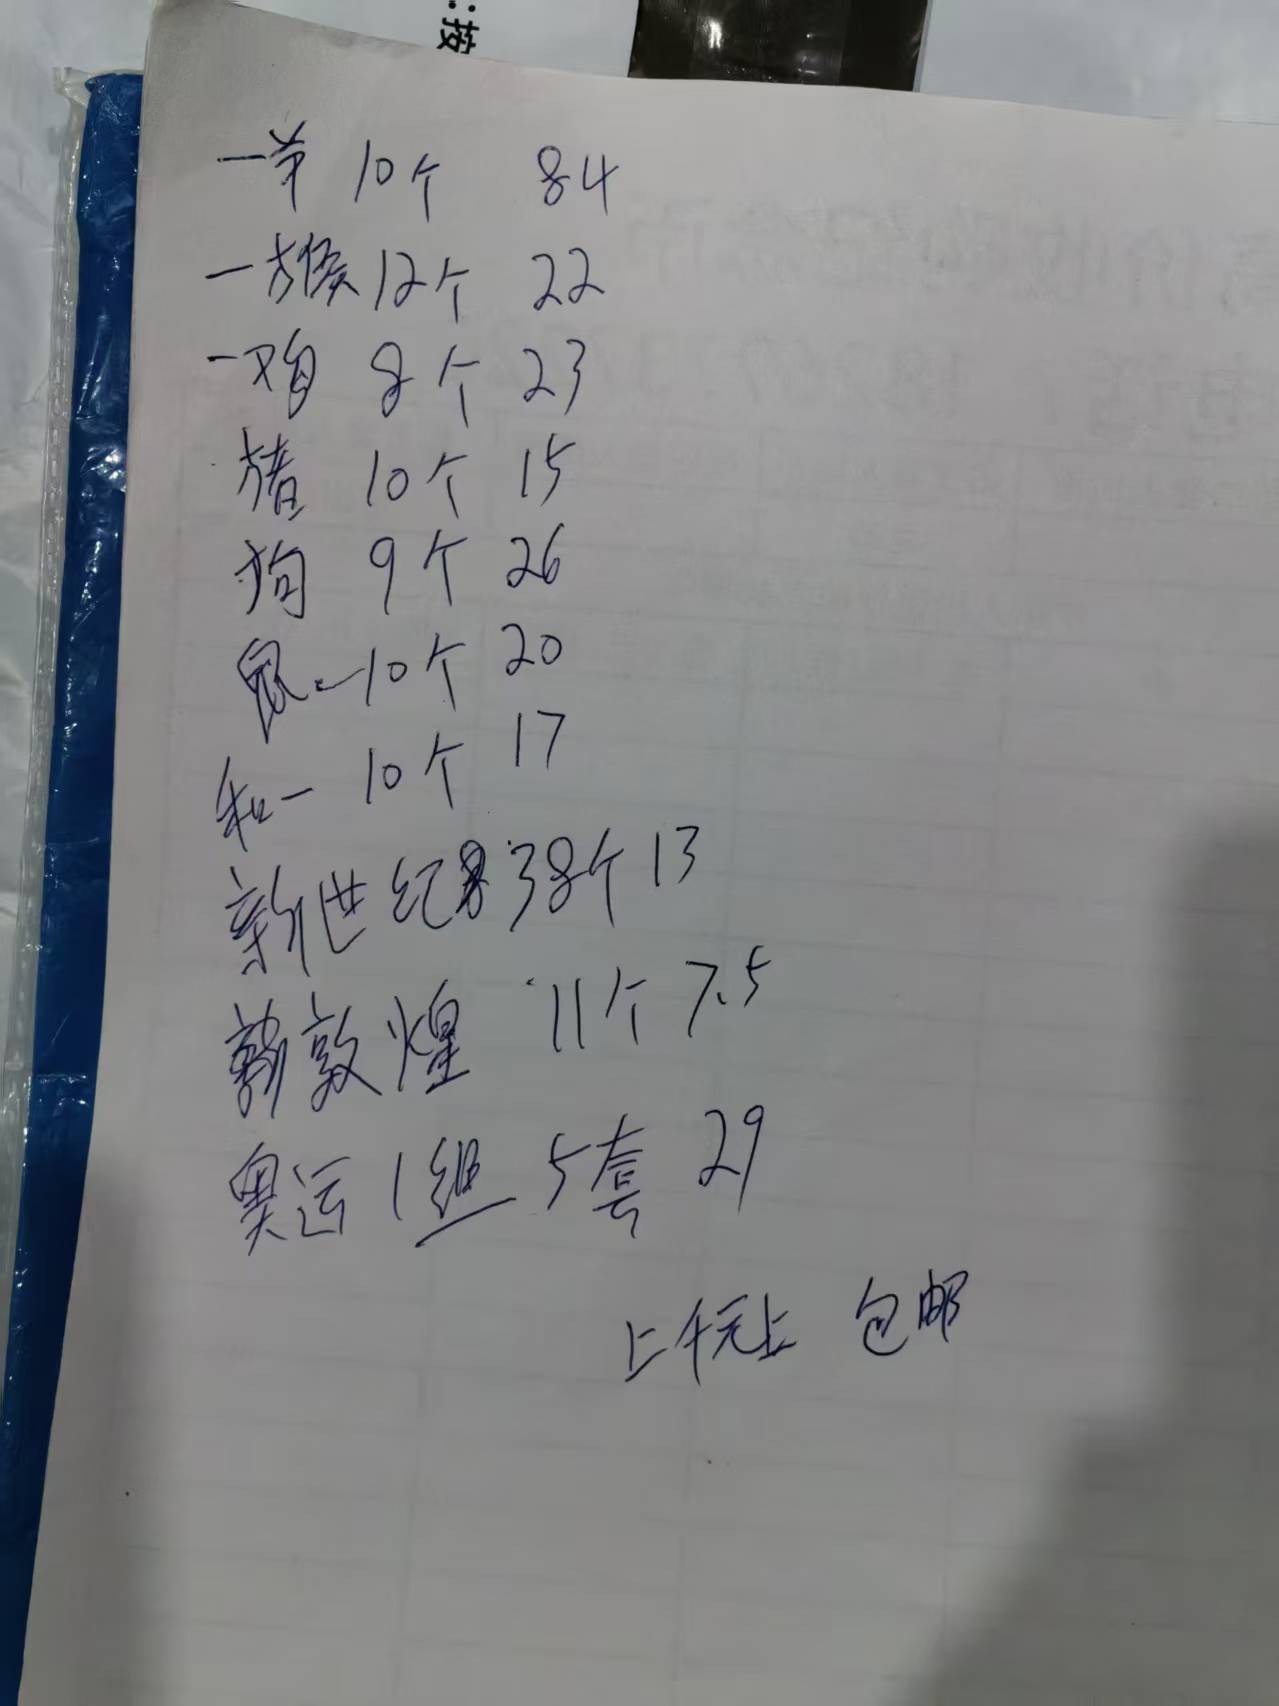 :按
一羊 10个 84
一猴 12个 22
一鸡 8个 23
猪 10个 15
狗 9个 26
鼠一10个 20
和一 10个 17
新世纪 38个 13
新敦煌 11个 7.5
奥运1组 5套 29
上千元上 包邮